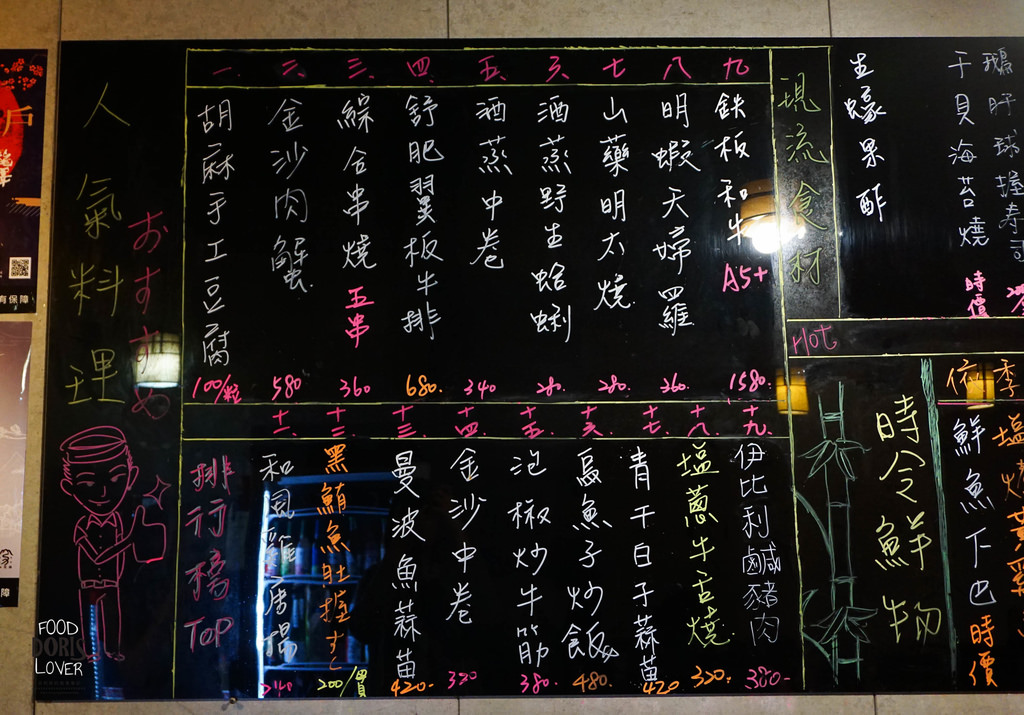 人氣料理
おすすめ
一、
胡麻手工豆腐
100/粒
二、
金沙肉蟹
580
三、
綜合串燒 五串
360
四、
舒肥翼板牛排
680.
五、
酒蒸中卷
340
六、
酒蒸野生蛤蜊
280.
七
山藥明太燒
280.
八
明蝦天婦羅
260.
九
鉄板和牛 A5+
1580.
現流食材
生蠔果酢
干貝海苔燒 時價
鵝肝球握寿司
排行榜 TOP
十一、
和風雞
240
十二、
黑鮪魚肚握すし
200/貫
十三、
曼波魚蒜苗
420-
十四、
金沙中卷
320
十五、
泡椒炒牛筋
380.
十六、
烏魚子炒飯
480.
十七、
青干白子蒜苗
420
十八、
塩蔥牛舌燒
320.
十九、
伊比利鹹豬肉
380-
Hot
時令鮮物
依
鮮魚下巴 時價
季
塩燒
FOOD
DORIS
LOVER
有保障